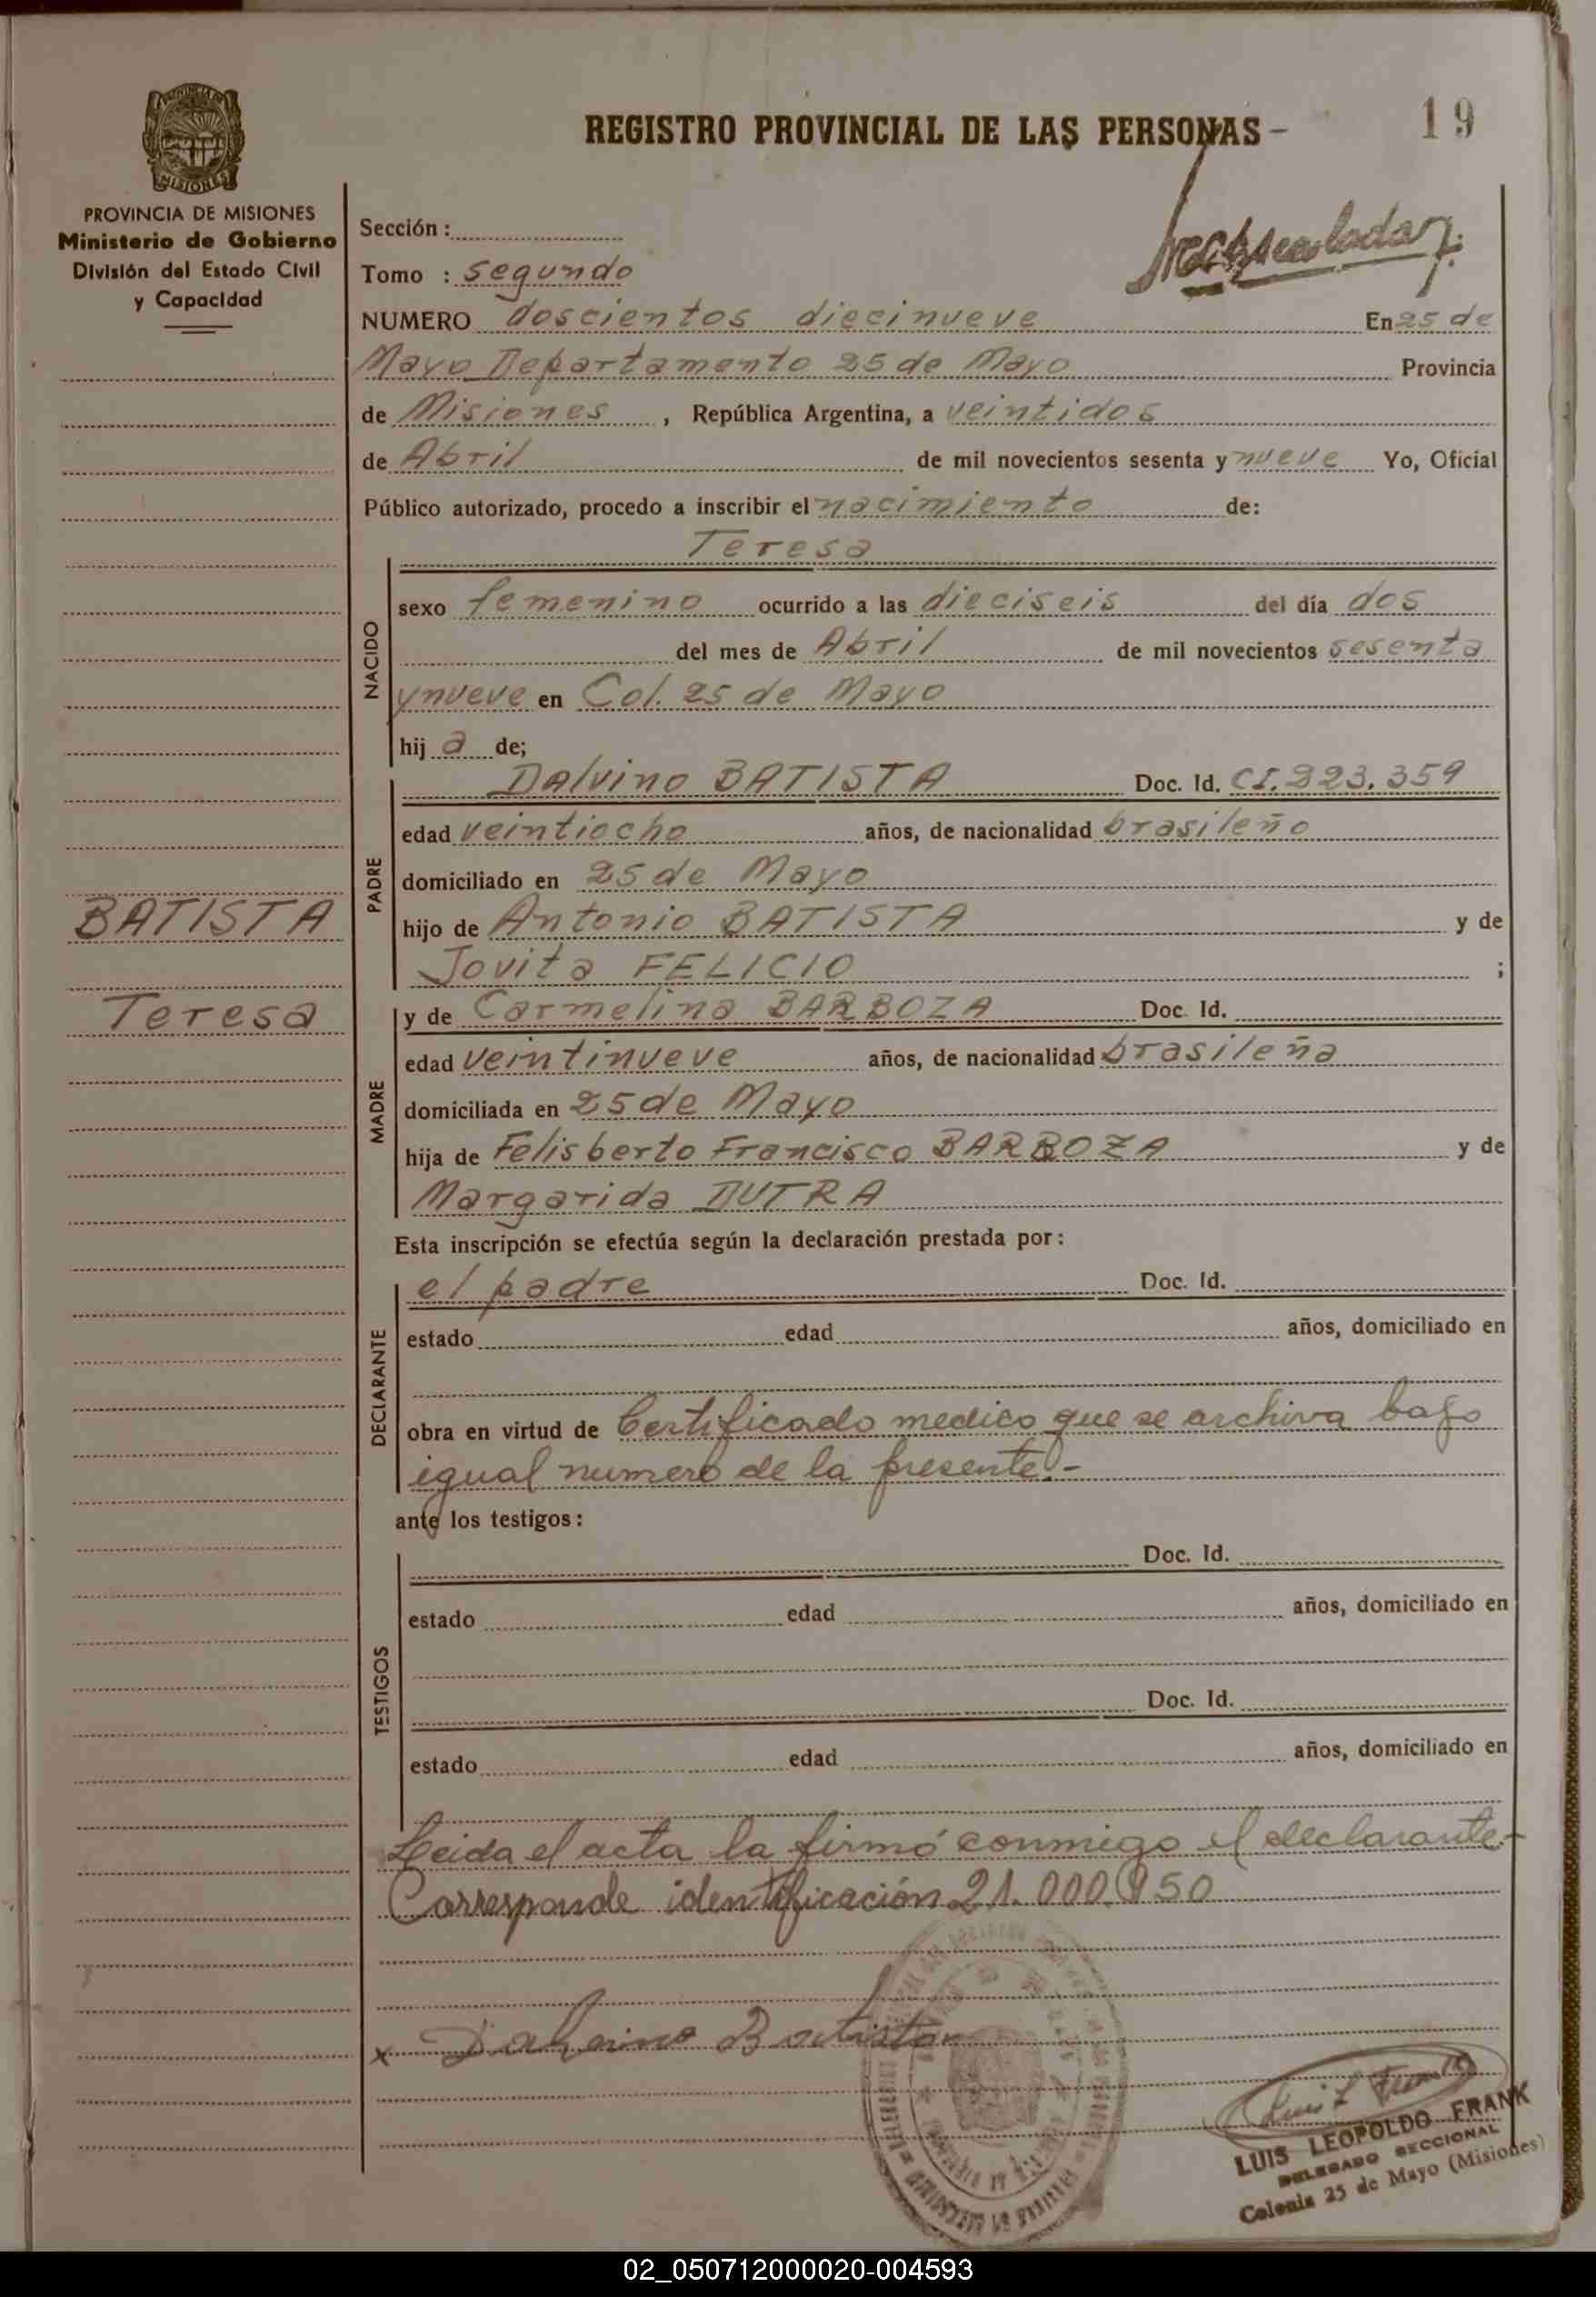 REGISTRO PROVINCIAL DE LAS PERSONAS -
19
PROVINCIA DE MISIONES
MISIONES
PROVINCIA DE MISIONES
Ministerio de Gobierno
División del Estado Civil
y Capacidad
Sección :
Tomo : segundo
NUMERO doscientos diecinueve En 25 de
Mayo Departamento 25 de Mayo Provincia
de Misiones , República Argentina, a veintidos
de Abril de mil novecientos sesenta y nueve Yo, Oficial
Público autorizado, procedo a inscribir el nacimiento de:
Teresa
NACIDO
sexo femenino ocurrido a las dieciseis del día dos
del mes de Abril de mil novecientos sesenta
y nueve en Col. 25 de Mayo
hij a de;
PADRE
Dalvino BATISTA Doc. Id. CI. 223.359
edad veintiocho años, de nacionalidad brasileño
domiciliado en 25 de Mayo
hijo de Antonio BATISTA y de
Jovita FELICIO ;
BATISTA
Teresa
MADRE
y de Carmelina BARBOZA Doc. Id.
edad veintinueve años, de nacionalidad brasileña
domiciliada en 25 de Mayo
hija de Felisberto Francisco BARBOZA y de
Margarida DUTRA
Esta inscripción se efectúa según la declaración prestada por:
DECLARANTE
el padre Doc. Id.
estado edad años, domiciliado en
obra en virtud de Certificado medico que se archiva bajo
igual numero de la presente.-
ante los testigos:
TESTIGOS
Doc. Id.
estado edad años, domiciliado en
Doc. Id.
estado edad años, domiciliado en
Leida el acta la firmó conmigo el declarante.-
Corresponde identificación 21.000.950
x Dalvino Batista
LUIS LEOPOLDO FRANK
DELEGADO SECCIONAL
Colonia 25 de Mayo (Misiones)
02_050712000020-004593